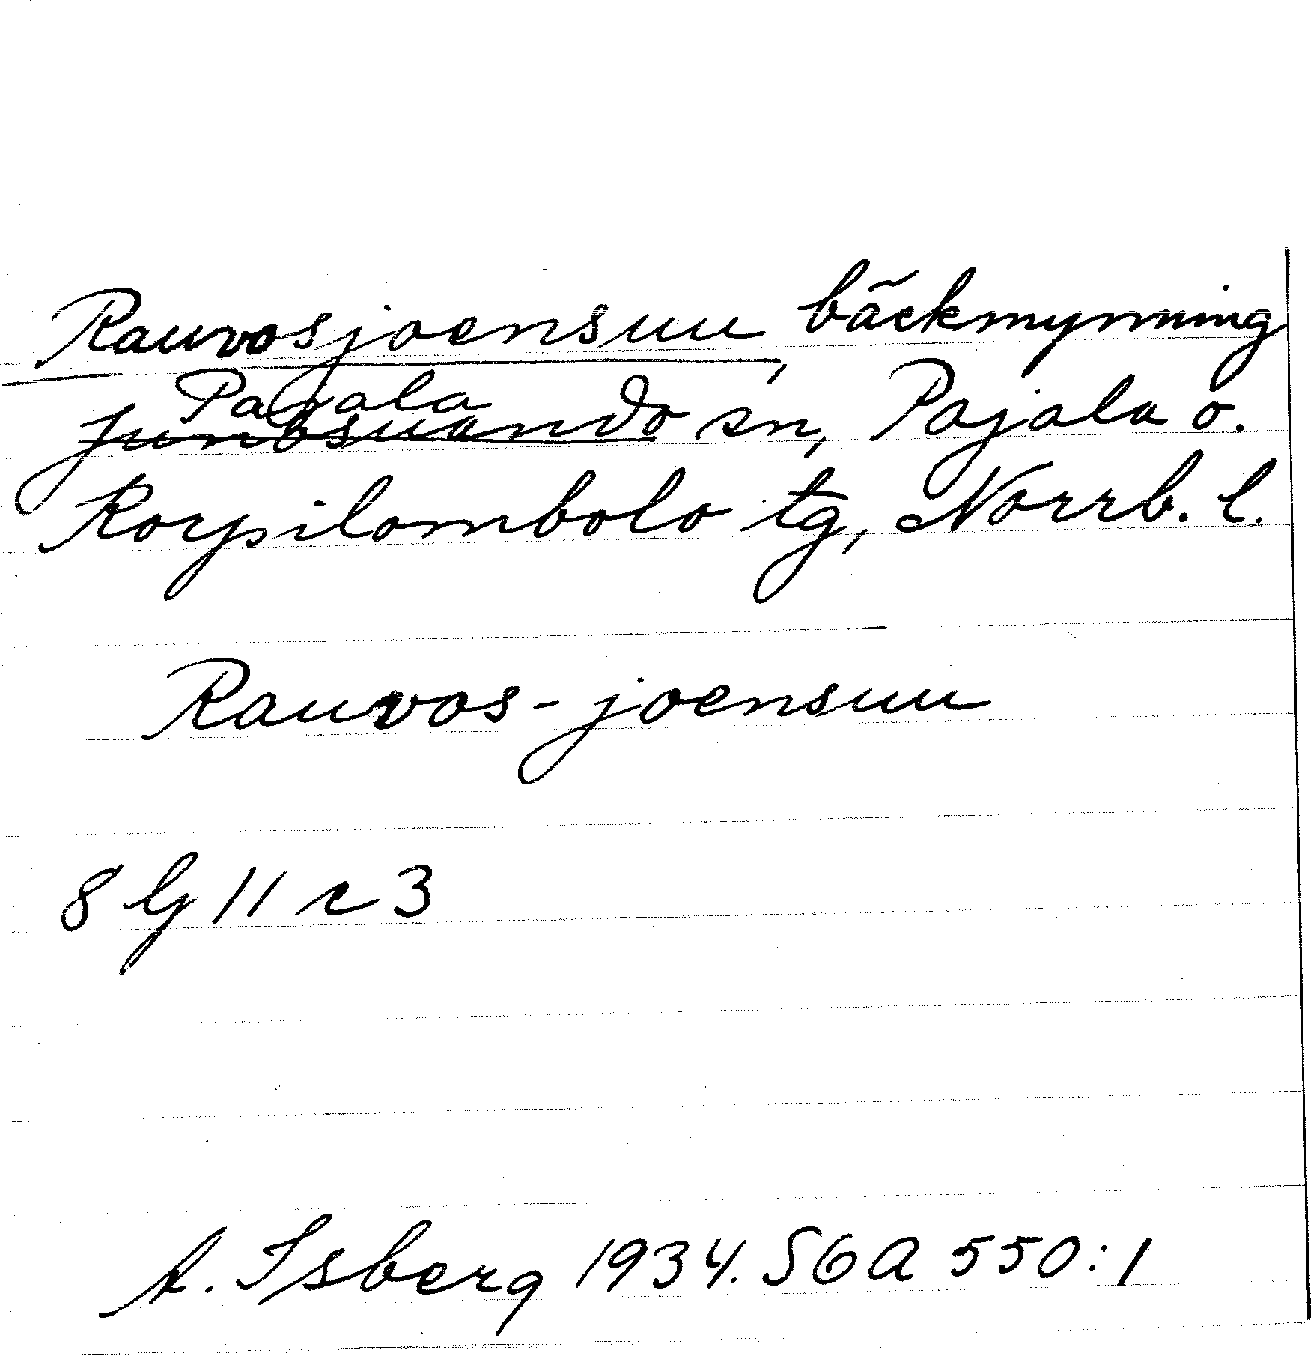 Rauvosjoensuu, bäckmynning
Pajala
Junosuando sn, Pajala o.
Korpilombolo tg, Norrb. l.
Rauvos-joensuu
8 G 11 r 3
A. Isberg 1934. SGA 550:1